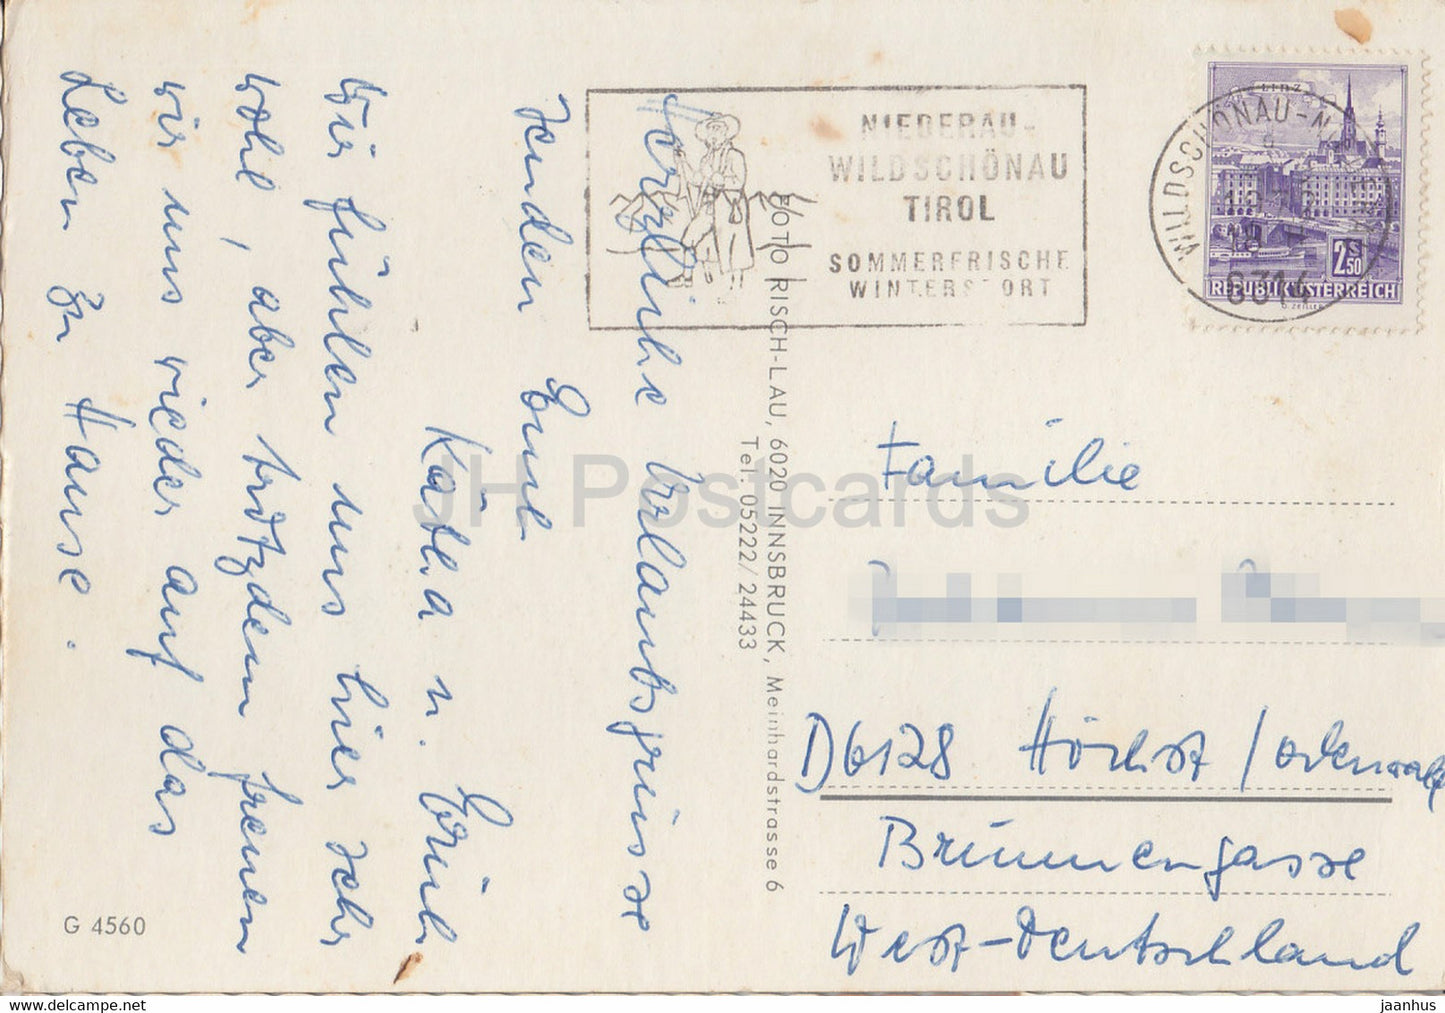 Herzliche Urlaubsgrüsse
senden Eure
Käthe u. Erich
Wir fühlen uns hier sehr
wohl, aber trotzdem freuen
wir uns wieder auf das
Leben zu Hause.
G 4560
FOTO RISCH-LAU, 6020 INNSBRUCK, Meinhardstrasse 6
Tel. 05222/24433
NIEDERAU-
WILDSCHÖNAU
TIROL
SOMMERFRISCHE
WINTERSPORT
LINZ
2 S 50
REPUBLIK ÖSTERREICH
WILDSCHÖNAU-N
6314
Familie
D6128 Höchst / Odenwald
Brunnengasse
West-Deutschland
JH Postcards
www.delcampe.net
jaanhus